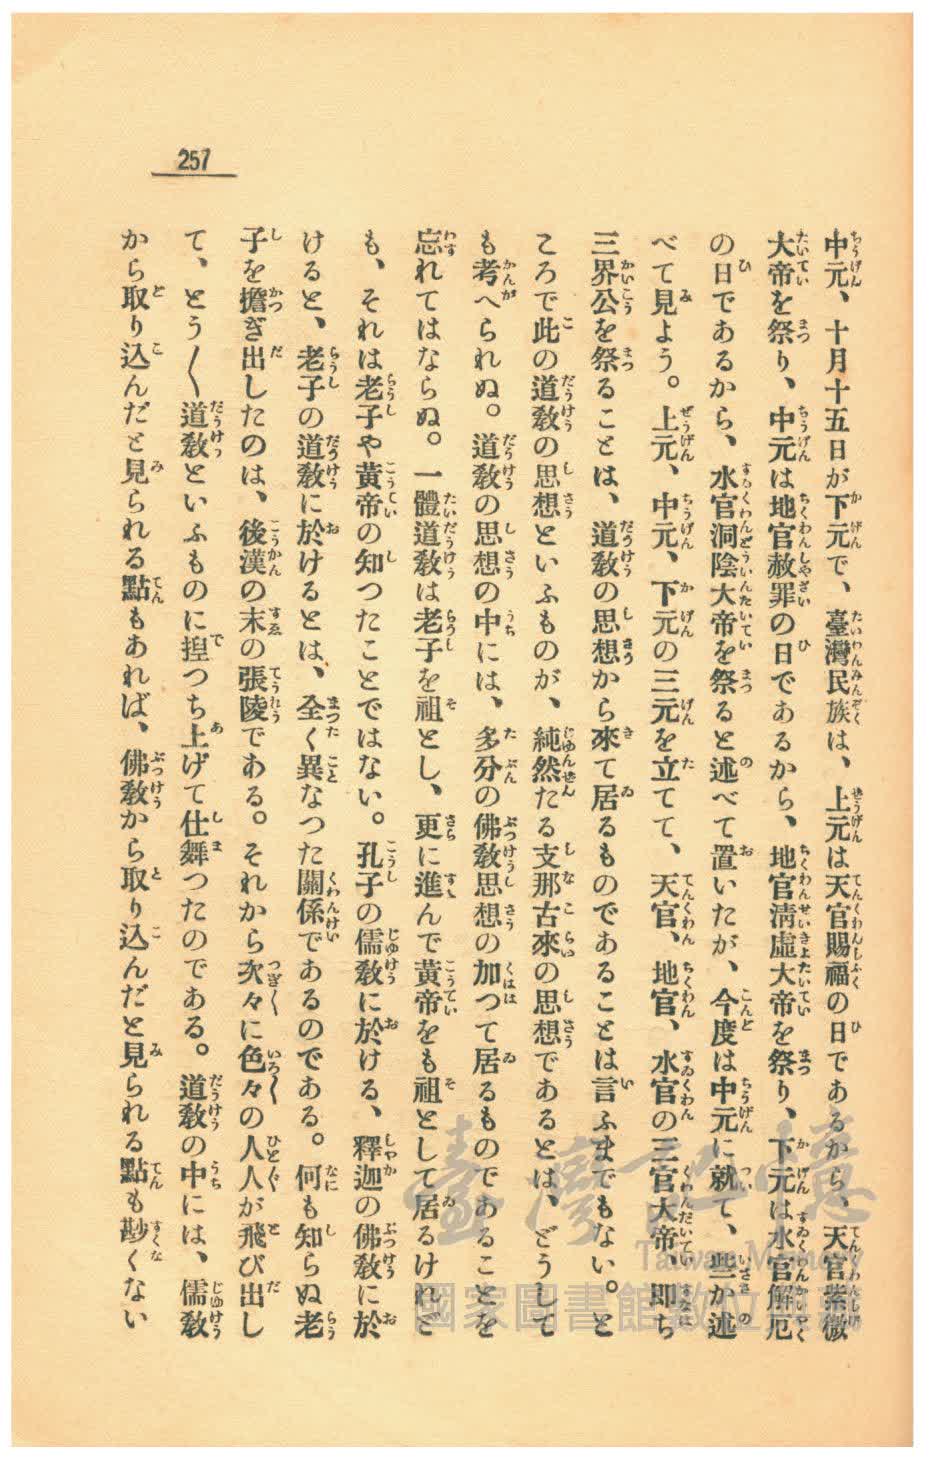 257
中元、十月十五日が下元で、臺灣民族は、上元は天官賜福の日であるから、天官紫微
大帝を祭り、中元は地官赦罪の日であるから、地官淸虛大帝を祭り、下元は水官解厄
の日であるから、水官洞陰大帝を祭ると述べて置いたが、今度は中元に就て、些か述
べて見よう。上元、中元、下元の三元を立てて、天官、地官、水官の三官大帝、卽ち
三界公を祭ることは、道敎の思想から來て居るものであることは言ふまでもない。と
ころで此の道敎の思想といふものが、純然たる支那古來の思想であるとは、どうして
も考へられぬ。道敎の思想の中には、多分の佛敎思想の加つて居るものであることを
忘れてはならぬ。一體道敎は老子を祖とし、更に進んで黃帝をも祖として居るけれど
も、それは老子や黃帝の知つたことではない。孔子の儒敎に於ける、釋迦の佛敎に於
けると、老子の道敎に於けるとは、全く異なつた關係であるのである。何も知らぬ老
子を擔ぎ出したのは、後漢の末の張陵である。それから次々に色々の人人が飛び出し
て、とう〳〵道敎といふものに揑つち上げて仕舞つたのである。道敎の中には、儒敎
から取り込んだと見られる點もあれば、佛敎から取り込んだと見られる點も尠くない
臺灣記憶
Taiwan Memory
國家圖書館數位典藏